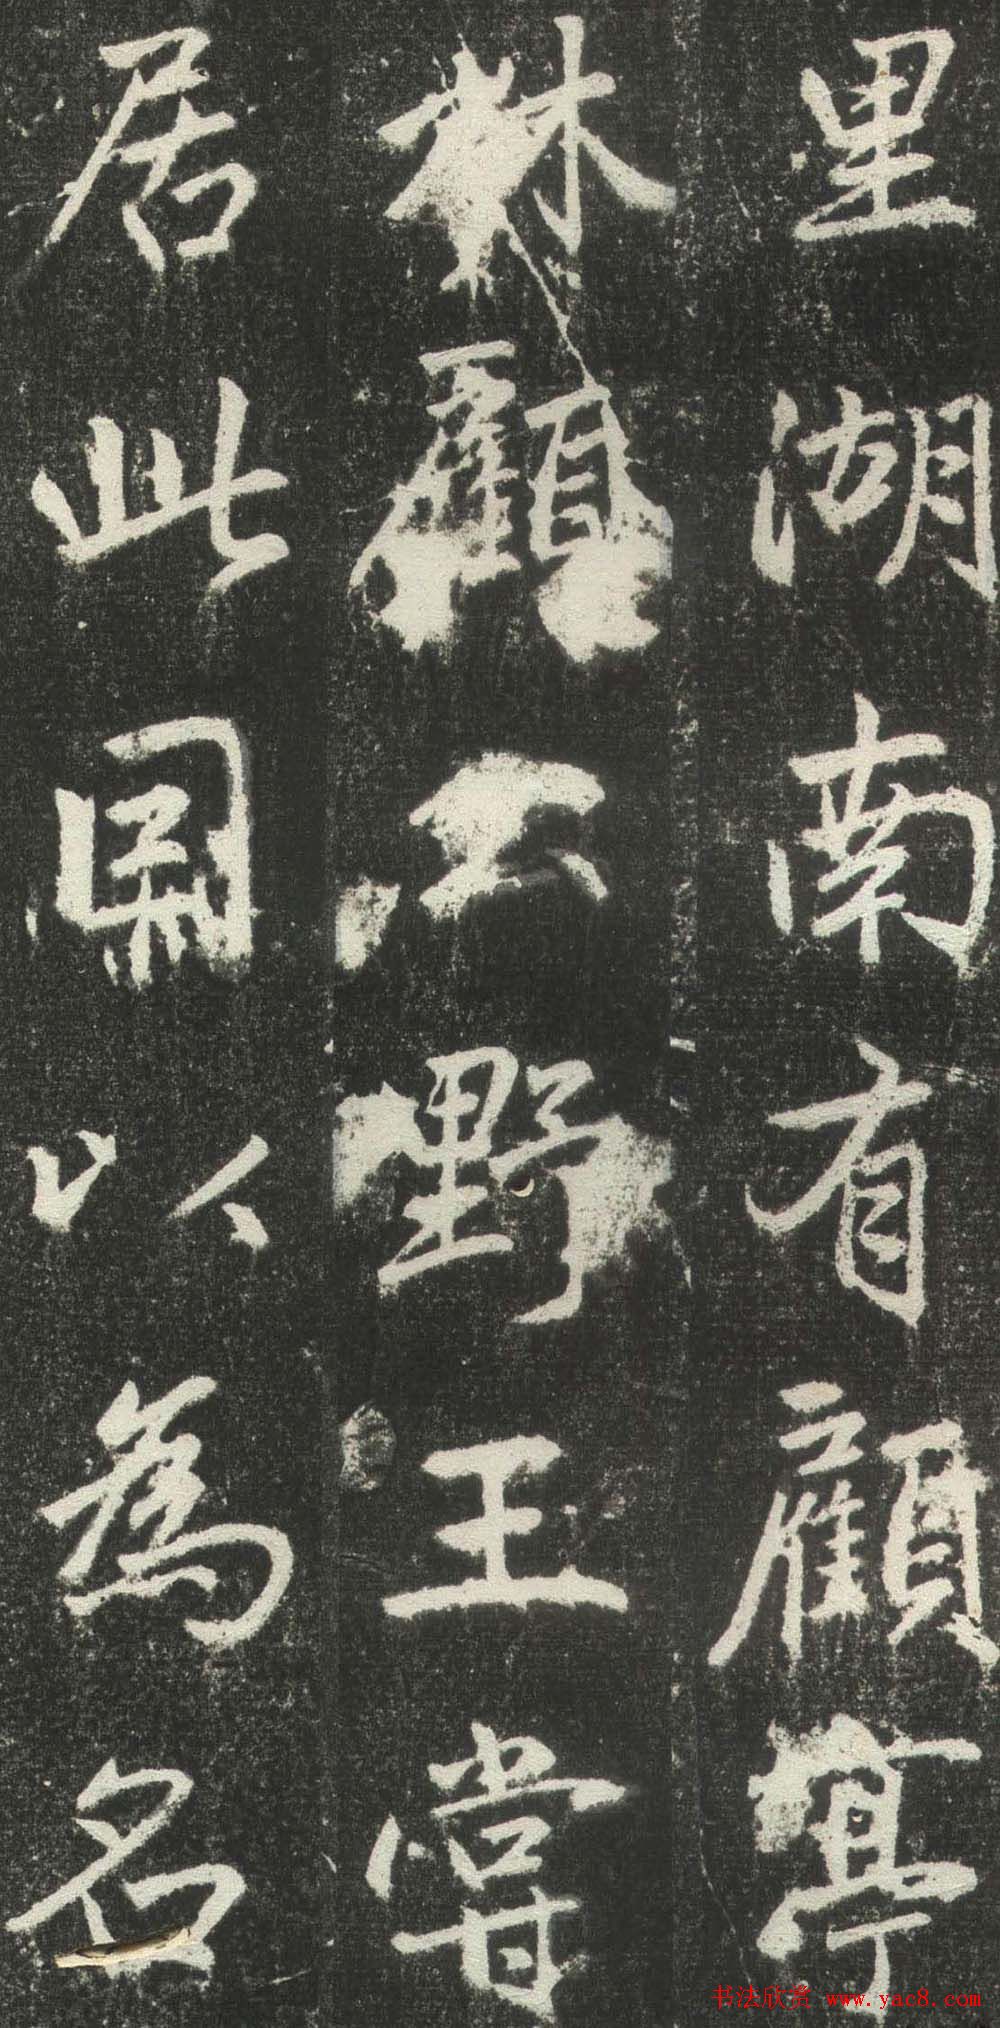 里湖南有顧亭
林顧公野王嘗
居此因以為名
书法欣赏 www.yac8.com